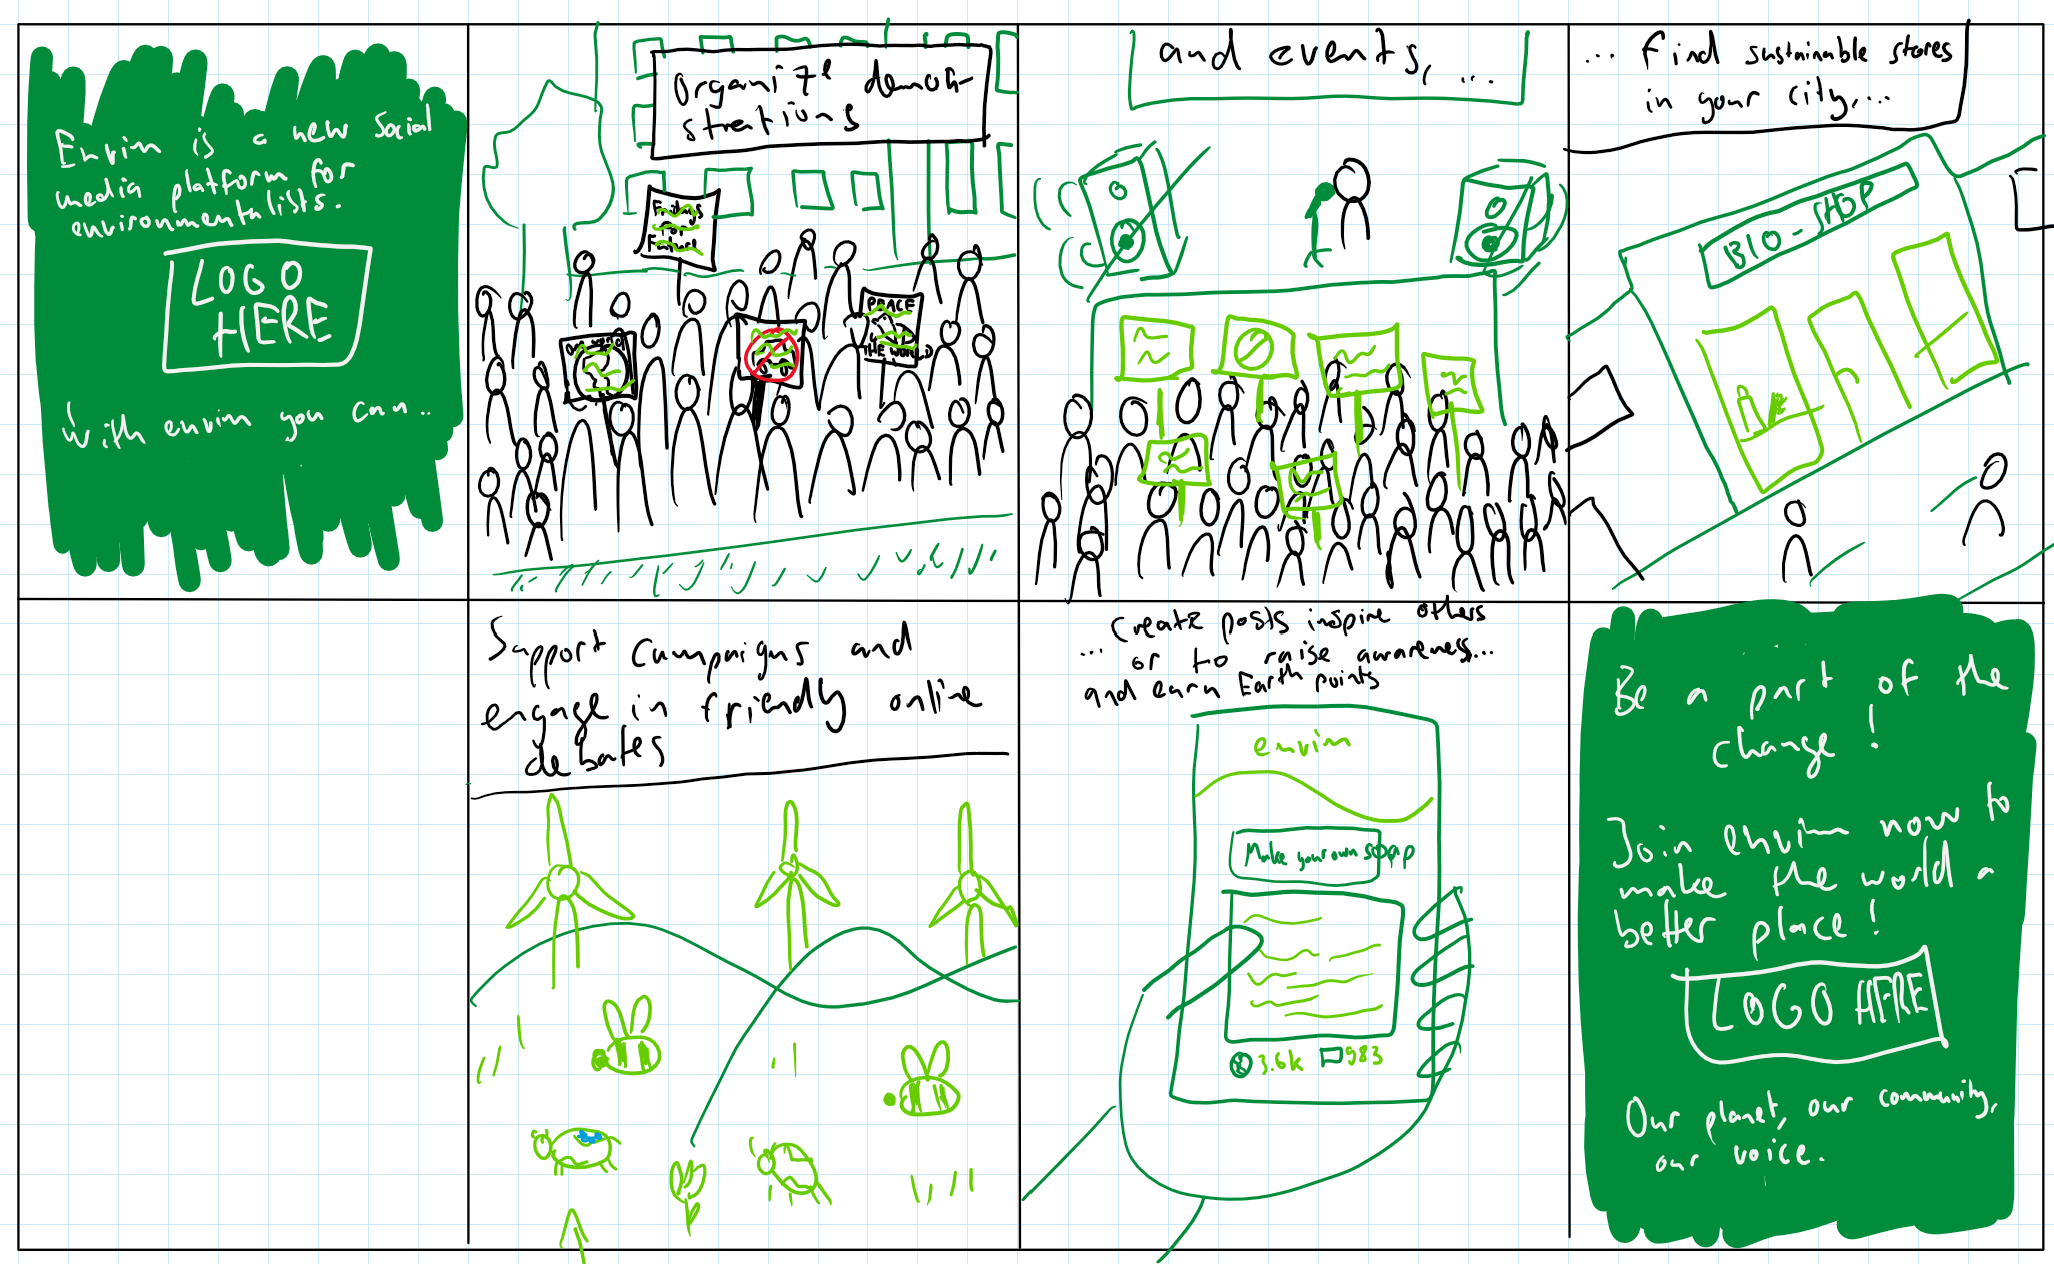 Envim is a new Social
media platform for
environmentalists.
LOGO
HERE
With envim you can..
Organize demon-
strations
Fridays
For
Future
One World
PEACE
THE WORLD
and events, ...
... find sustainable stores
in your city,...
BIO-SHOP
Support campaigns and
engage in friendly online
debates
... create posts inspire others
or to raise awareness...
and earn Earth points
envim
Make your own soap
3.6k 983
Be a part of the
change!
Join envim now to
make the world a
better place!
LOGO HERE
Our planet, our community,
our voice.